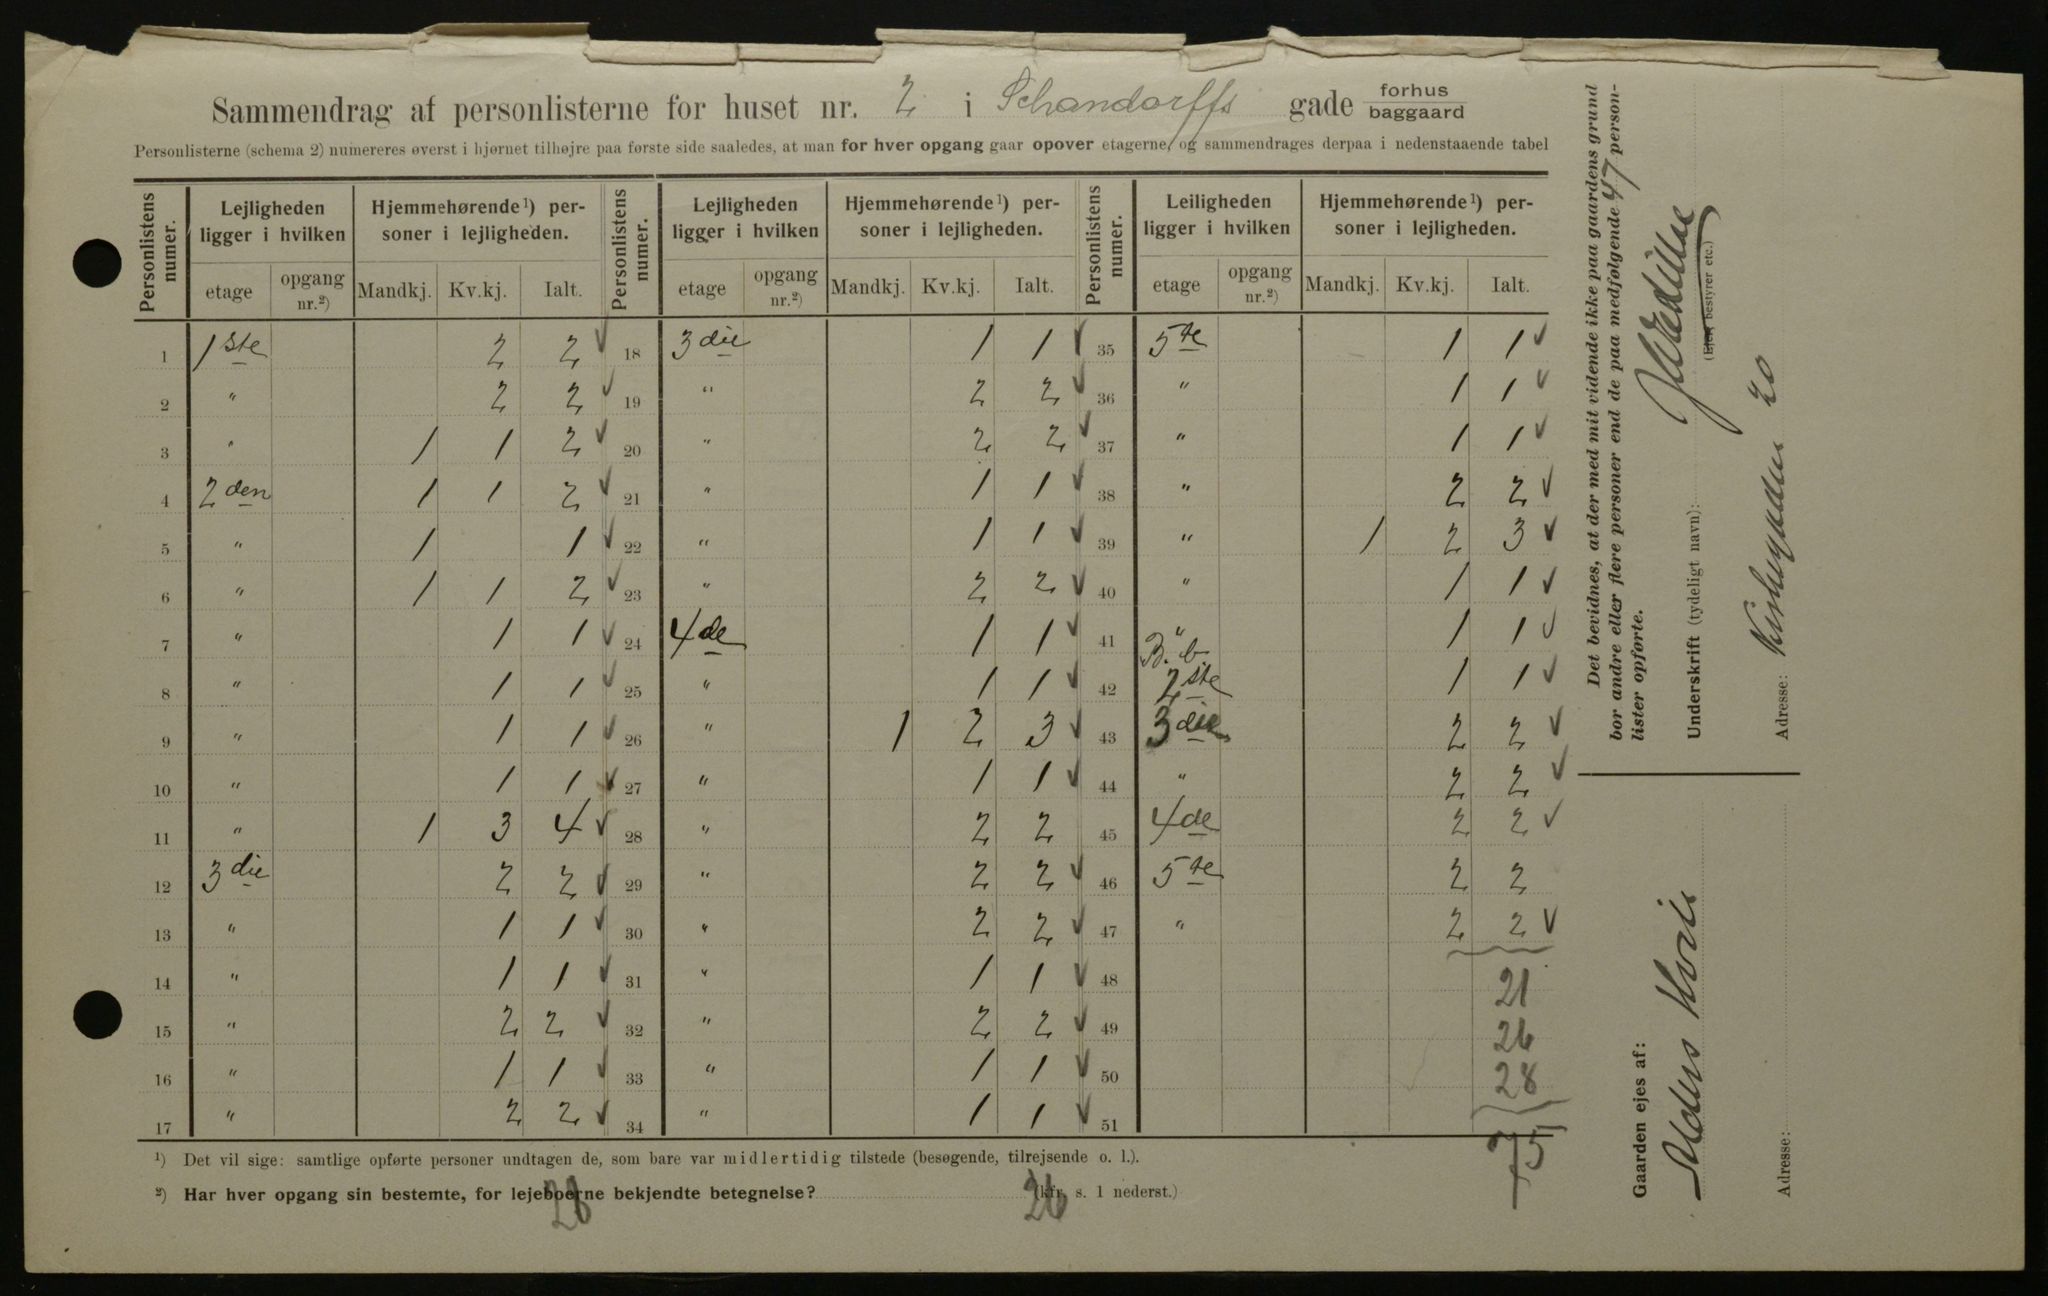 Sammendrag af personlisterne for huset nr. 2 i Schandorffs gade forhus baggaard
Personlisterne (schema 2) numereres øverst i hjørnet tilhøjre paa første side saaledes, at man for hver opgang gaar opover etagerne, og sammendrages derpaa i nedenstaaende tabel
Personlistens numer. Lejligheden ligger i hvilken Hjemmehørende 1) personer i lejligheden. Personlistens numer. Lejligheden ligger i hvilken Hjemmehørende 1) personer i lejligheden. Personlistens numer. Leiligheden ligger i hvilken Hjemmehørende 1) personer i lejligheden.
etage opgang nr. 2) Mandkj. Kv.kj. Ialt. etage opgang nr. 2) Mandkj. Kv.kj. Ialt. etage opgang nr. 2) Mandkj. Kv.kj. Ialt.
1 1ste 2 2 18 3die 1 1 35 5te 1 1
2 " 2 2 19 " 2 2 36 " 1 1
3 " 1 1 2 20 " 2 2 37 " 1 1
4 2den 1 1 2 21 " 1 1 38 " 2 2
5 " 1 1 22 " 1 1 39 " 1 2 3
6 " 1 1 2 23 " 2 2 40 " 1 1
7 " 1 1 24 4de 1 1 41 " 1 1
B. b.
8 " 1 1 25 " 1 1 42 2ste 1 1
9 " 1 1 26 " 1 2 3 43 3die 2 2
10 " 1 1 27 " 1 1 44 " 2 2
11 " 1 3 4 28 " 2 2 45 4de 2 2
12 3die 2 2 29 " 2 2 46 5te 2 2
13 " 1 1 30 " 2 2 47 " 2 2
14 " 1 1 31 " 1 1 48 21
15 " 2 2 32 " 2 2 49 26
16 " 1 1 33 " 1 1 50 28
17 " 2 2 34 " 1 1 51
75
1) Det vil sige: samtlige opførte personer undtagen de, som bare var midlertidig tilstede (besøgende, tilrejsende o. l.).
2) Har hver opgang sin bestemte, for lejeboerne bekjendte betegnelse? (kfr. s. 1 nederst.)
28 26
Det bevidnes, at der med mit vidende ikke paa gaardens grund
bor andre eller flere personer end de paa medfølgende 47 person-
lister opførte.
Underskrift (tydeligt navn):
(Ejer, bestyrer etc.)
Adresse: 20
Gaarden ejes af:
Adresse: